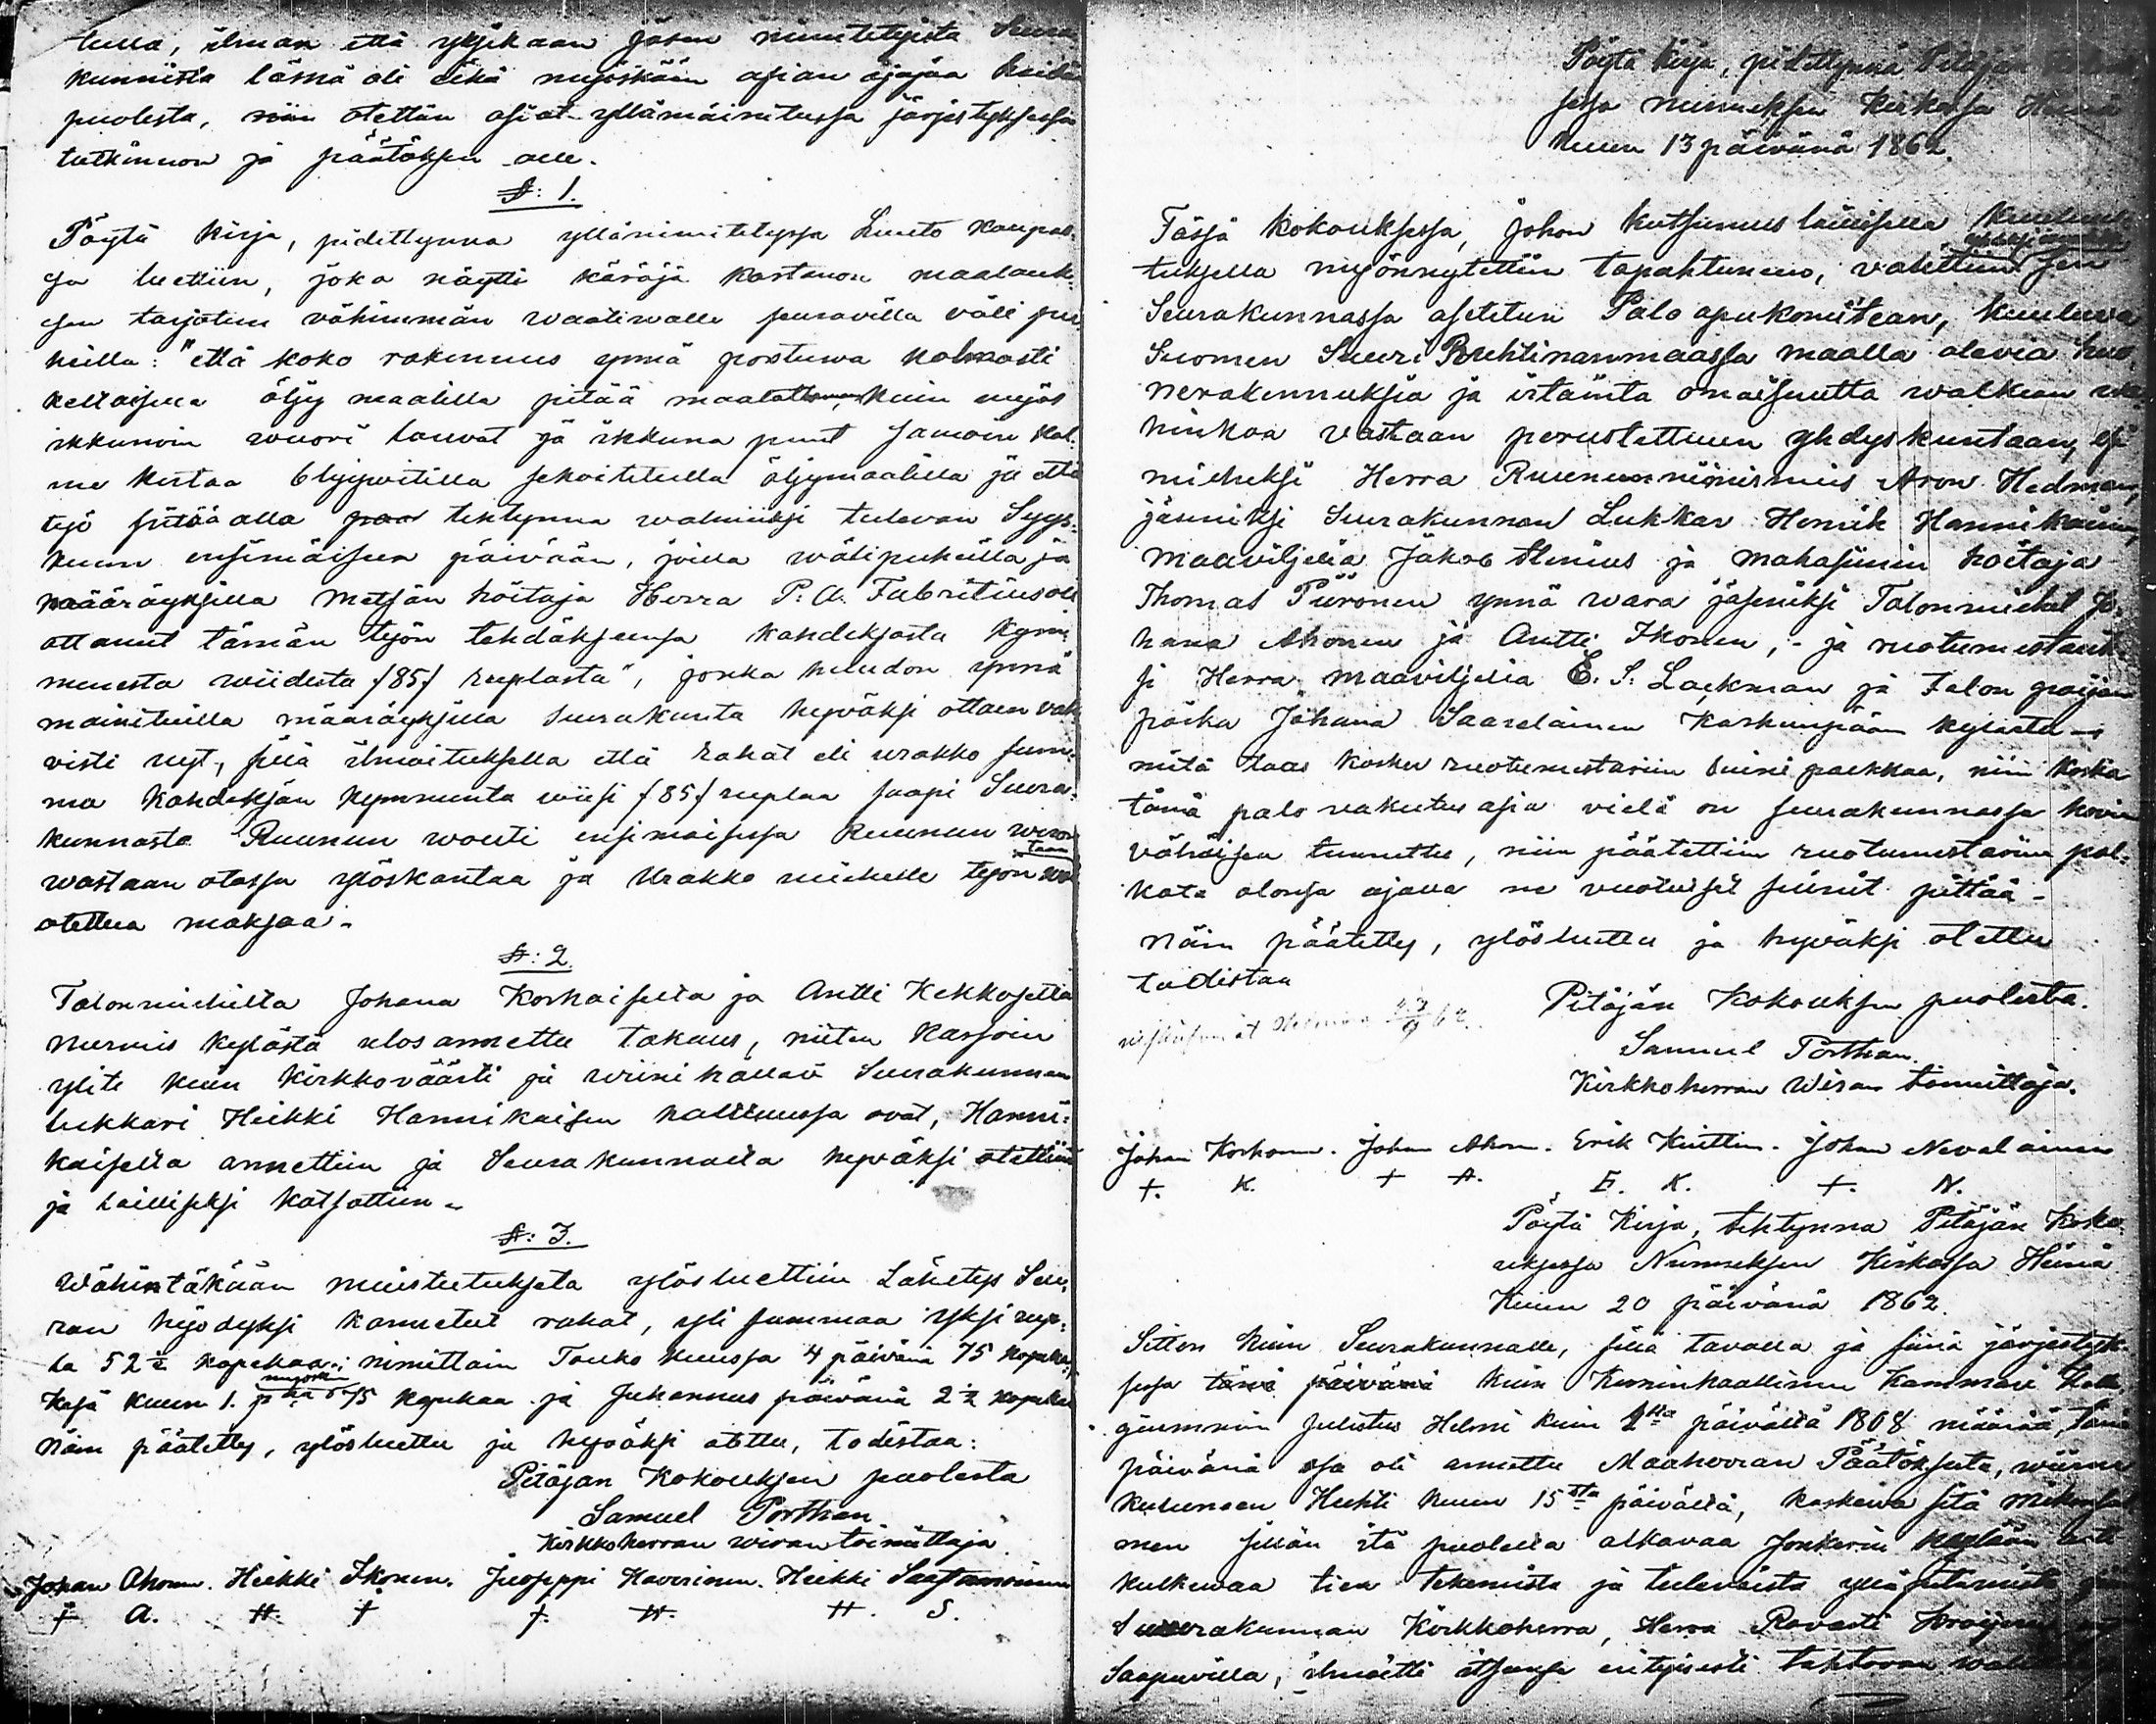 tulla, ilman että yksikään jäsen nimitetyistä Seura
kunnista läsnä oli eikä myöskään asian ajajaa heidän
puolesta, niin otettiin asiat yllämainitussa järjestyksessä
tutkinnon ja päätöksen alle.
§: 1.
Pöytä kirja, pidettynnä yllänimitetyssä Luuto kaupas¬
sa luettiin, joka näytti käräjä kartanon maalauk¬
sen tarjotun vähimmän waatiwalle seuravilla väli pu¬
heilla: "että koko rakennus ynnä porstuwa kolmasti
keltaisella öljy maalilla pitää maalattaman, kuin myös
ikkunoin wuori lauvat ja ikkuna puut samoin kol¬
me kertaa blyijwitilla sekoitetulla öljymaalilla ja että
työ pitää olla tehtynnä walmiiksi tulevan Syys¬
kuun ensimäiseen päivään, joilla wälipuheilla ja
määräyksillä Metsän hoitaja Herra P: A: Fabritius oli
ottanut tämän työn tehdäksensä kahdeksasta kym¬
menestä wiidestä /85/ ruplasta", jonka huudon ynnä
mainituilla määräyksillä Seurakunta hyväksi ottaen vah¬
visti nyt, sillä ilmoituksella että rahat eli urakko sum¬
ma kahdeksan kymmentä wiisi /85/ ruplaa saapi Seura¬
kunnasta Ruunun wouti ensimäisessä Ruunun weron
wastaan otossa ylöskantaa ja Urakko miehelle työn
otettua maksaa.
§: 2.
Talonmiehiltä Johana Korhoiselta ja Antti Kekkoselta
nurmis kylästä ulosannettu takaus, niiten kassoin
ylite kuin kirkkoväärti ja wiinikallari Seurakunnan
lukkari Heikki Hannikaisen hallinnossa ovat, Hanni¬
kaiselta annettiin ja Seurakunnalta hyväksi otettiin
ja lailliseksi katsottiin.
§: 3.
Wähintäkään muistutuksetta ylösluettiin Lähetys Seu¬
ran hyödyksi kannetut rahat, yli summaa yksi rup¬
la 52½ kopekaa; nimittäin Touko kuussa 4 päivänä 75 kopekaa,
Kesä kuun 1. p:nä myöskin 75 kopekaa ja Juhannus päivänä 2½ kopekaa
Näin päätetty, ylösluettu ja hyväksi otettu, todistaa:
Pitäjän Kokouksen puolesta
Samuel Porthan
Kirkkoherran wiran toimittaja
Johan Ahonen. Heikki Ikonen. Juoseppi Haverinen. Heikki Saastamoinen
+ A. H. + +. H. H. S.
Pöytä kirja, pidettynnä Pitäjän
sessa nurmeksen kirkossa Heinä
kuun 13 päivänä 1862.
Tässä kokouksessa, johon kutsumus laillisella kuulu
tuksella myönnytettiin tapahtuneen, valittiin sen
Seurakunnassa asetetun Palo apukomitean, kuuluva
Suomen Suuri Ruhtinanmaassa maalla olevia huo
nerakennuksia ja irtainta omaisuutta walkian wa¬
hinkoa vastaan perustettuun yhdyskuntaan, esi
mieheksi Herra Ruunun nimismies Aron Hedman,
jäseniksi Seurakunnan Lukkar Henrik Hannikainen,
maaviljeliä Jakob Stenius ja makasiinin hoitaja
Thomas Piironen ynnä wara jäseniksi Talonmiehet Jo¬
hana Ahonen ja Antti Ikonen, - ja ruotumestarik¬
si Herra maaviljeliä E. S. Lackman ja talon pojan
poika Johana Saarelainen Karhunpään kylästä -
mitä taas koskee ruotumestarein luini palkkaa, niin koska
tämä palo vakutus asia vielä on seurakunnassa hovin
vähäisen tunnettu, niin päätettiin ruotumestarein pal¬
kata olonsa ajalla ne vuotuiset siinit pittää -
Näin päätetty, ylösluettu ja hyväksi otettu
todistaa
Pitäjän Kokouksen puolesta.
Samuel Porthan.
Kirkkoherran Wiran toimittaja.
Johan Korhonen. Johan Ahonen. Erik Kuittinen. Johan Nevalainen
+. K. + A. E. K. +. N.
Pöytä Kirja, tehtynnä Pitäjän Koko¬
uksessa Nurmeksen Kirkossa Heinä
Kuun 20 päivänä 1862.
Sitten kuin Seurakunnalle, sillä tavalla ja siinä järjestyk¬
sessä tänä päivänä kuin Keisinkaallinen Kammari Kolle¬
giummin Julistus Helmi kuun päivältä 1808 määrää, tänä
päivänä osa oli annettu Maaherran Päätöksestä, wiime
kuluneen Huhti kuun 15sta päivältä, koskewa sitä
men sillan itä puolella alkavaa Jonkerin kylään
kulkewaa tien tekemistä ja tulevaista ylläpitämistä
Seurakunnan Kirkkoherra, Herra Rovasti
Saapuvilla, ilmoitti itsensä erityisesti tahtovan